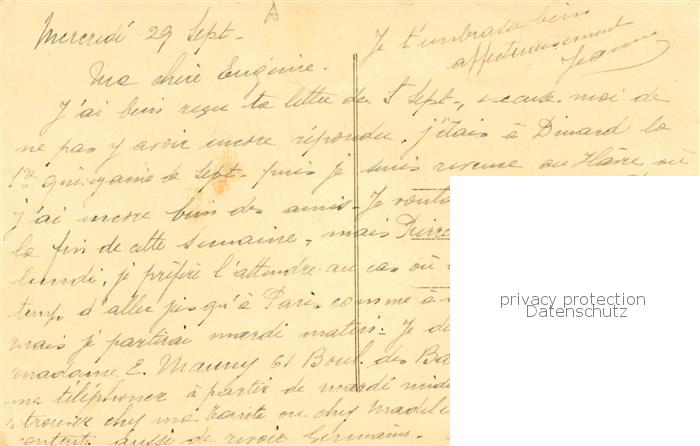 Mercredi 29 Sept.
Je t'embrasse bien
affectueusement
Jeanne
Ma chère Eugénie.
J'ai bien reçu ta lettre du 5 Sept., excuse-moi de
ne pas y avoir encore répondu, j'étais à Dinard la
1re quinzaine de Sept. puis je suis revenue au Hâvre où
j'ai encore bien des amis. Je
la fin de cette semaine, mais Pierre
lundi, je préfère l'attendre au cas où
temps d'aller jusqu'à Paris comme
mais je partirai mardi matin. Je
madame E. Mauny 61 Boul. des
me téléphoner à partir de mardi midi
trouver chez ma tante ou chez
contente aussi de revoir Germaine.
privacy protection
Datenschutz